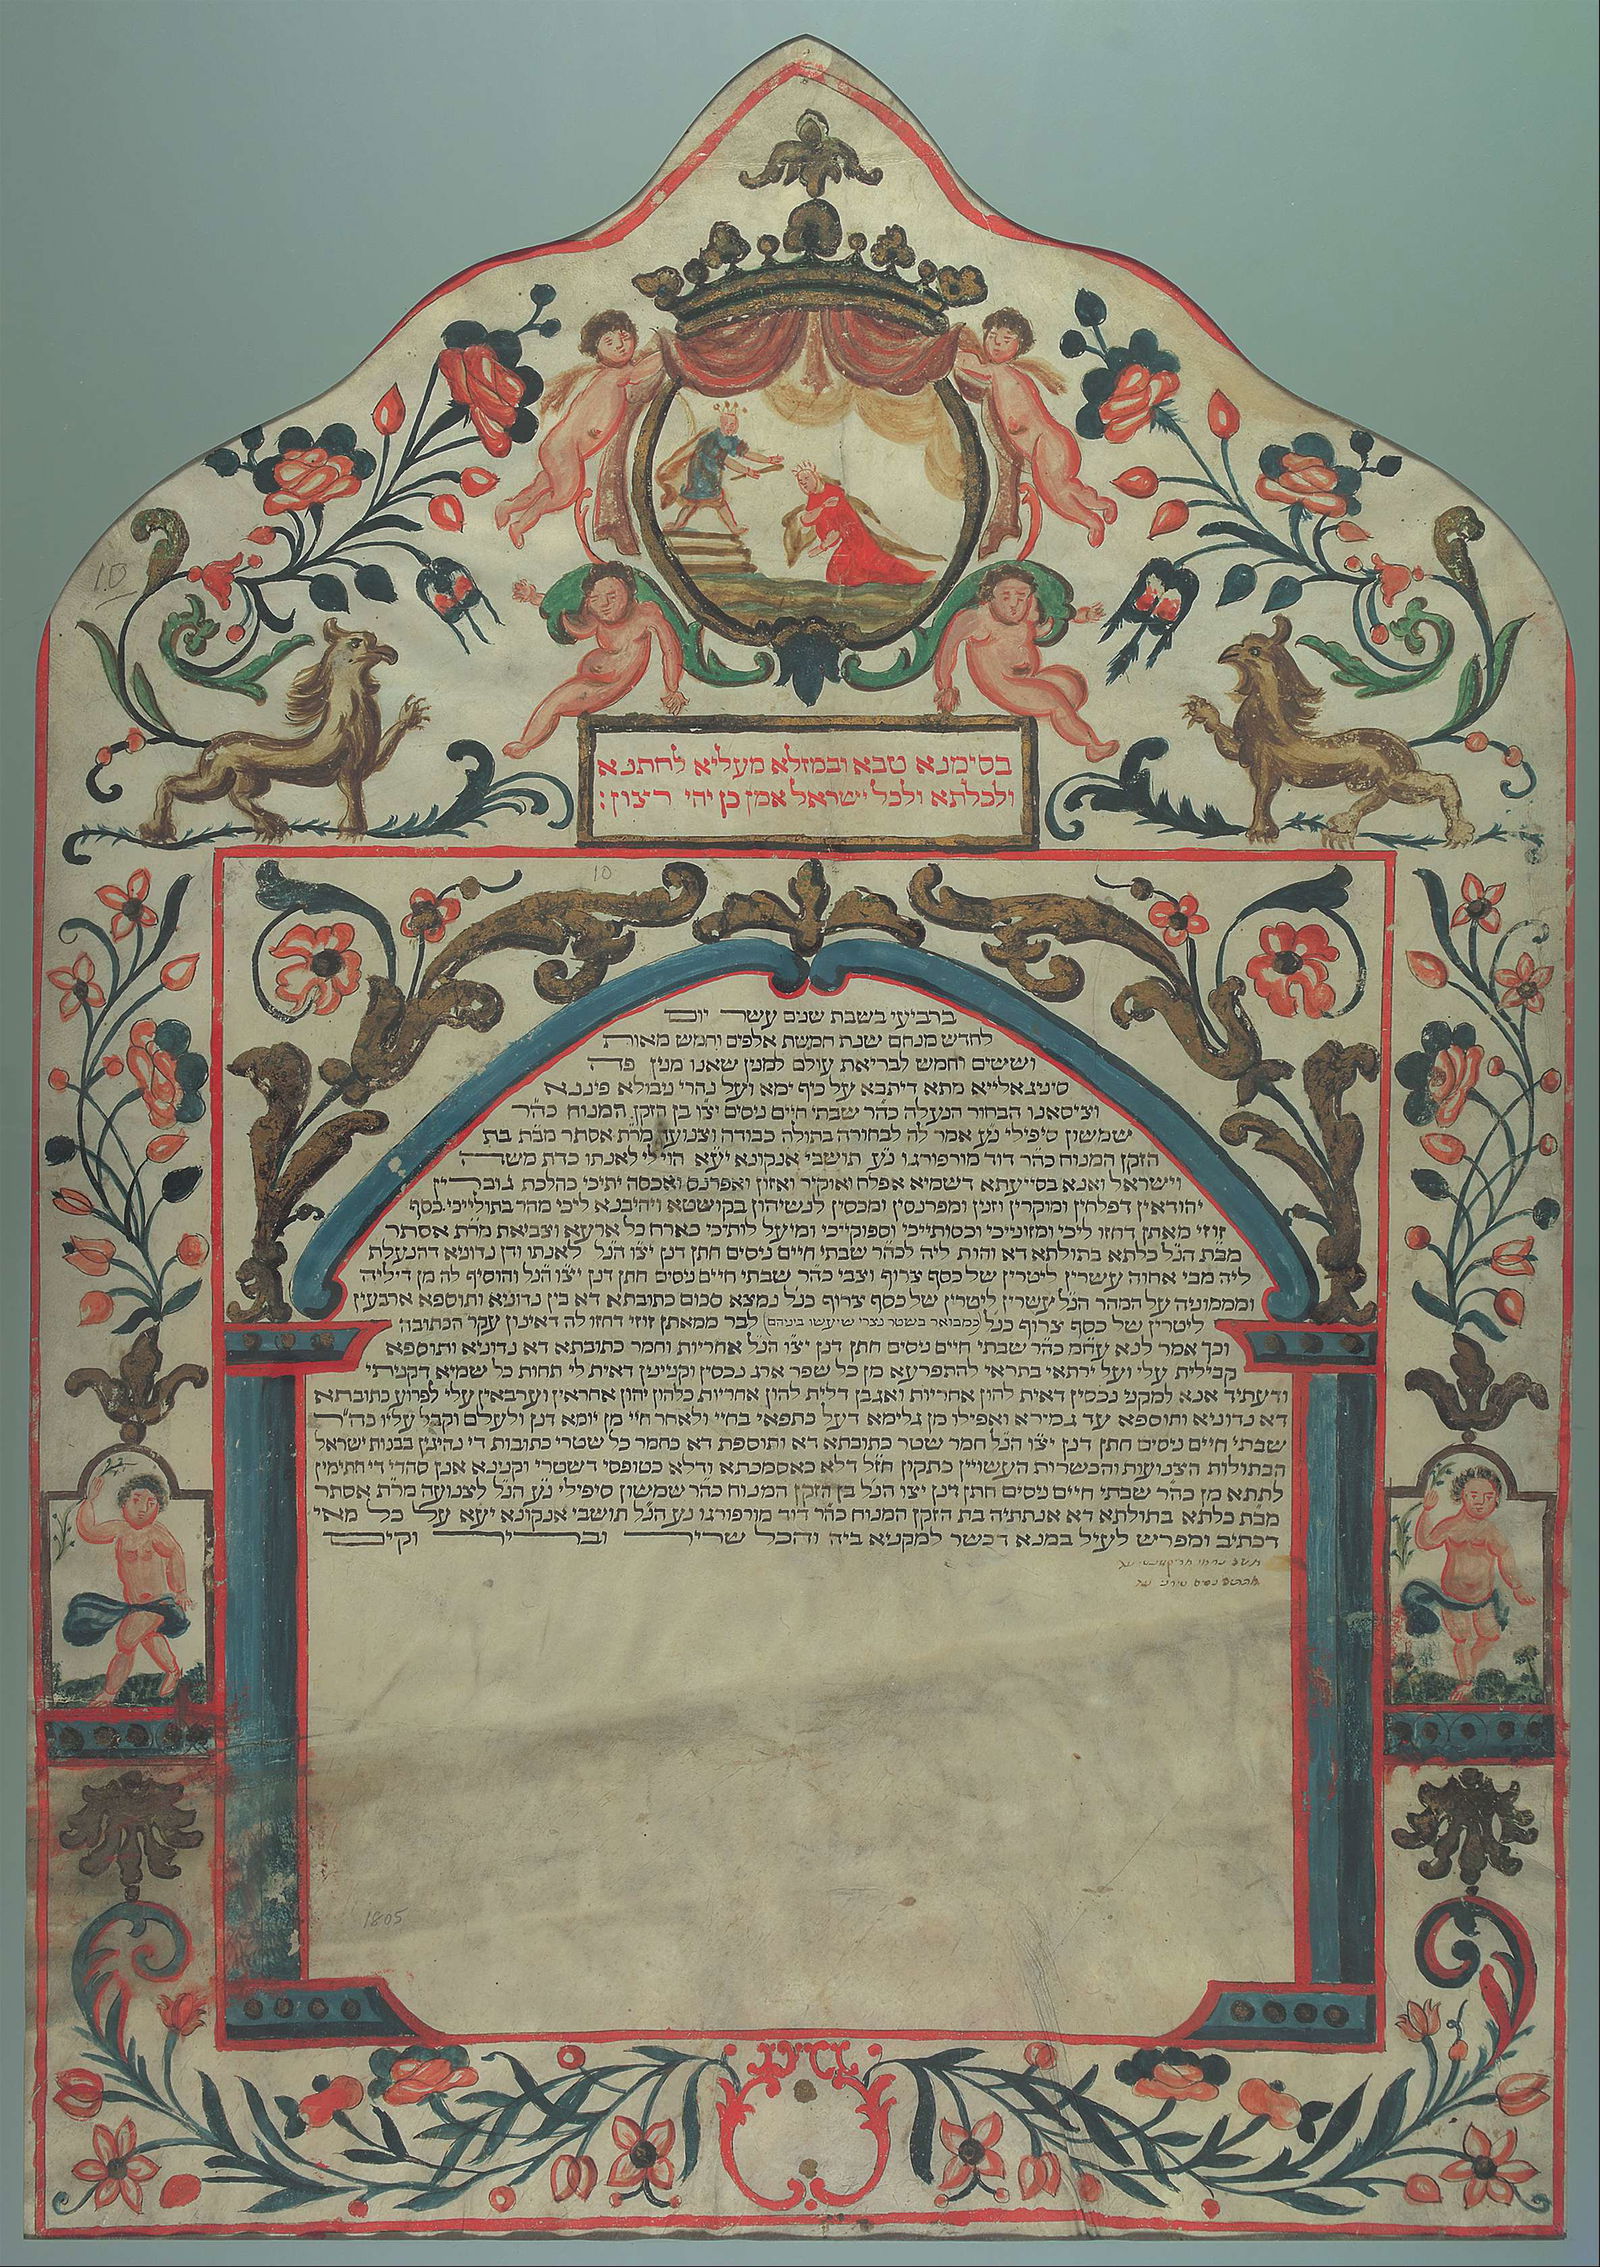 10
בסימנא טבא ובמזלא מעליא לחתנא
ולכלתא ולכל ישראל אמן כן יהי רצון:
10
ברביעי בשבת שנים עשר יום
לחדש מנחם שנת חמשת אלפים וחמש מאות
וששים וחמש לבריאת עולם למנין שאנו מנין פה
סיניגאלייא מתא דיתבא על כיף ימא ועל נהרי
הבחור הנעלה כהר שבתי חיים ניסים יצו בן הזקן המנוח כהר
שמשון סיפילי נע אמר לה לבחורה בתולה כבודה וצנועה מרת אסתר מבת בת
הזקן המנוח כהר דוד מורפורגו נע תושבי אנקונא יעא הוי לי לאנתו כדת משה
וישראל ואנא בסייעתא דשמיא אפלח ואוקיר ואזון ואפרנס ואכסה יתיכי כהלכת גוברין
יהודאין דפלחין ומוקרין וזנין ומפרנסין ומכסין לנשיהון בקושטא ויהיבנא ליכי מהר בתולייכי כסף
זוזי מאתן דחזו ליכי ומזוניכי וכסותייכי וספוקייכי ומיעל לותיכי כארח כל ארעא וצביאת מרת אסתר
מבת הנל כלתא בתולתא דא והות ליה לכהר שבתי חיים ניסים חתן דנן יצו הנל לאנתו ודן נדוניא דהנעלת
ליה מבי אחוה עשרין ליטרין של כסף צרוף וצבי כהר שבתי חיים ניסים חתן דנן יצו הנל והוסיף לה מן דיליה
ומממוניה על המהר הנל עשרין ליטרין של כסף צרוף כנל נמצא סכום כתובתא דא בין נדוניא ותוספא ארבעין
ליטרין של כסף צרוף כנל (כמבואר בשטר נצרי שיעשו ביניהם) לבר ממאתן זוזי דחזו לה דאינון עקר הכתובה
וכך אמר לנא שבתי חיים ניסים חתן דנן יצו הנל אחריות וחמר כתובתא דא נדוניא ותוספא
קבילית עלי ועל ירתאי בתראי להתפרעא מן כל שפר ארג נכסין וקנינין דאית לי תחות כל שמיא דקניתי
ודעתיד אנא למקני נכסין דאית להון אחריות ואגבן דלית להון אחריות כלהון יהון אחראין וערבאין עלי לפרוע כתובתא
דא נדוניא ותוספא עד גמירא ואפילו מן גלימא דעל כתפאי בחיי ולאחר חיי מן יומא דנן ולעלם וקבל עליו כהר
שבתי חיים ניסים חתן דנן יצו הנל חמר שטר כתובתא דא ותוספת דא כחמר כל שטרי כתובות די נהיגין בבנות ישראל
הבתולות הצנועות והכשרות העשויין כתקון חזל דלא כאסמכתא ודלא כטופסי דשטרי וקנינא אנן סהדי די חתימין
לתתא מן כהר שבתי חיים ניסים חתן דנן יצו הנל בן הזקן המנוח כהר שמשון סיפילי נע הנל לצנועה מרת אסתר
מבת כלתא בתולתא דא אנתתיה בת הזקן המנוח כהר דוד מורפורגו נע הנל תושבי אנקונא יעא על כל מאי
דכתיב ומפרש לעיל במנא דכשר למקניא ביה והכל שריר ובריר וקים
1805